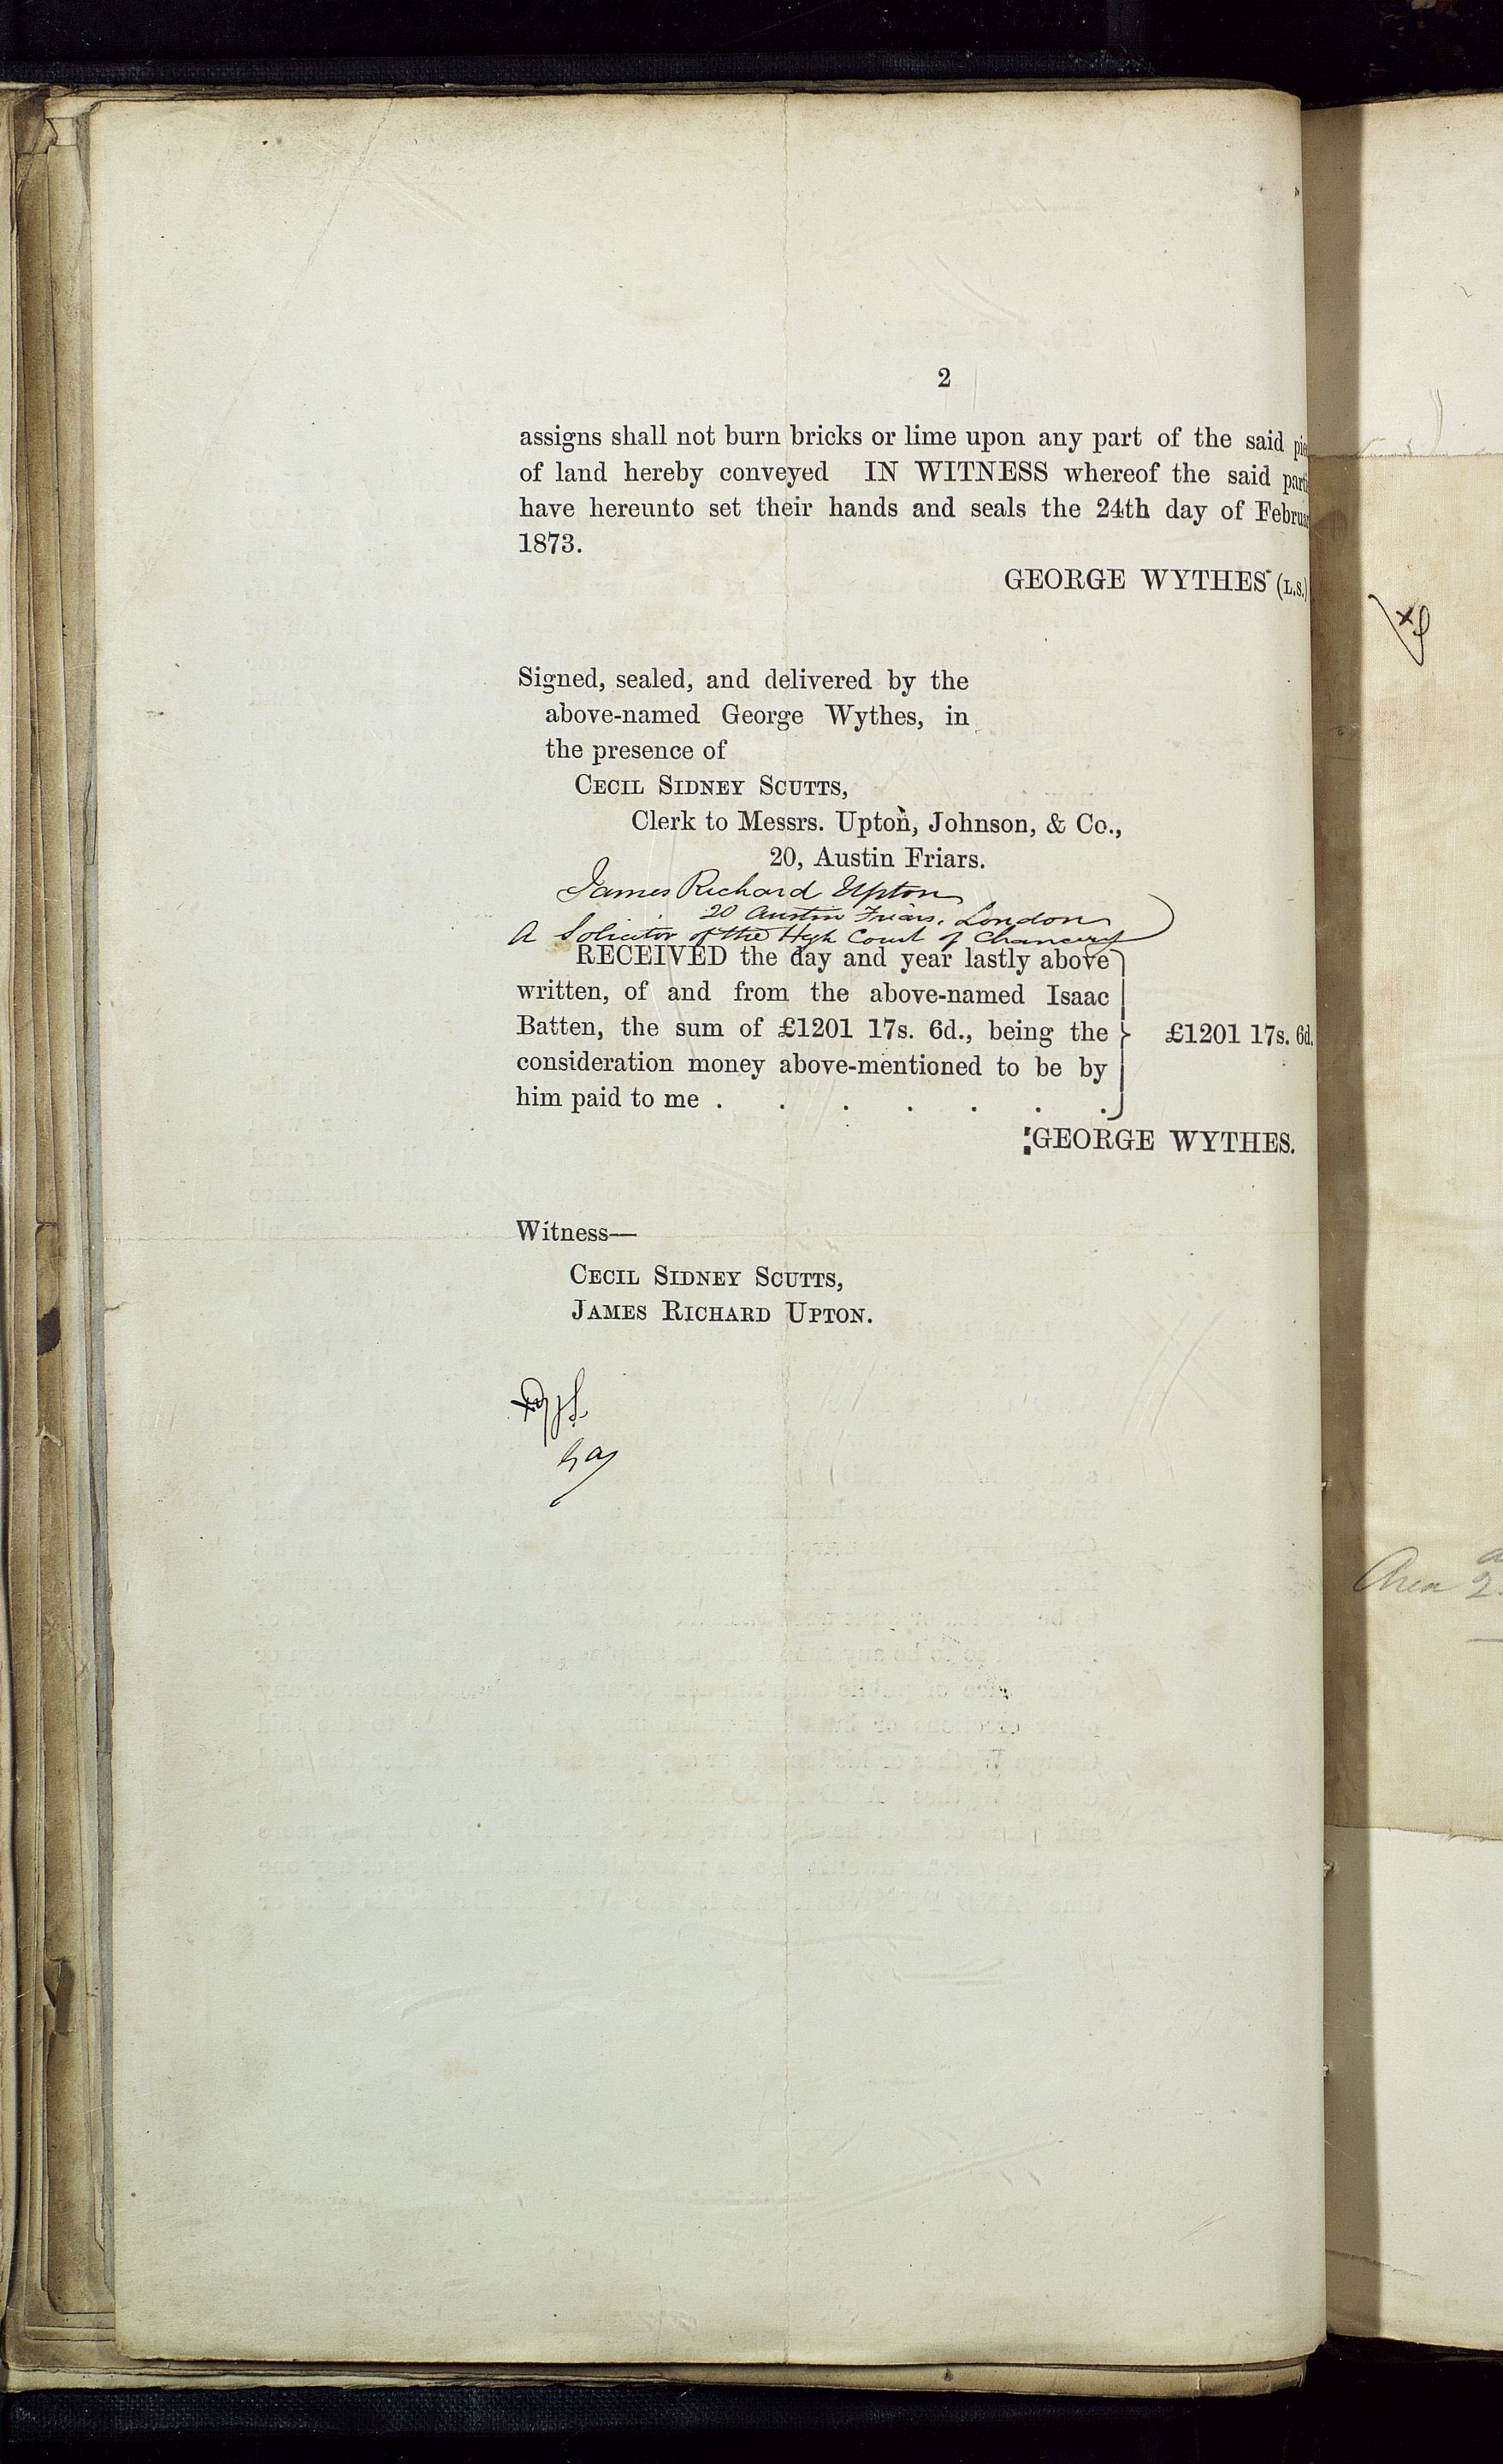 2
assigns shall not burn bricks or lime upon any part of the said
of land hereby conveyed IN WITNESS whereof the said
have hereunto set their hands and seals the 24th day of
1873.
GEORGE WYTHES (L.S.)
Signed, sealed, and delivered by the
above-named George Wythes, in
the presence of
CECIL SIDNEY SCUTTS,
Clerk to Messrs. Upton, Johnson, & Co.,
20, Austin Friars.
James Richard Upton
20 Austin Friars, London
A Solicitor of the High Court of Chancery
RECEIVED the day and year lastly above
written, of and from the above-named Isaac
Batten, the sum of £1201 17s. 6d., being the
£1201 17s. 6d.
consideration money above-mentioned to be by
him paid to me . . . . . . .
GEORGE WYTHES.
Witness—
CECIL SIDNEY SCUTTS,
JAMES RICHARD UPTON.
Area